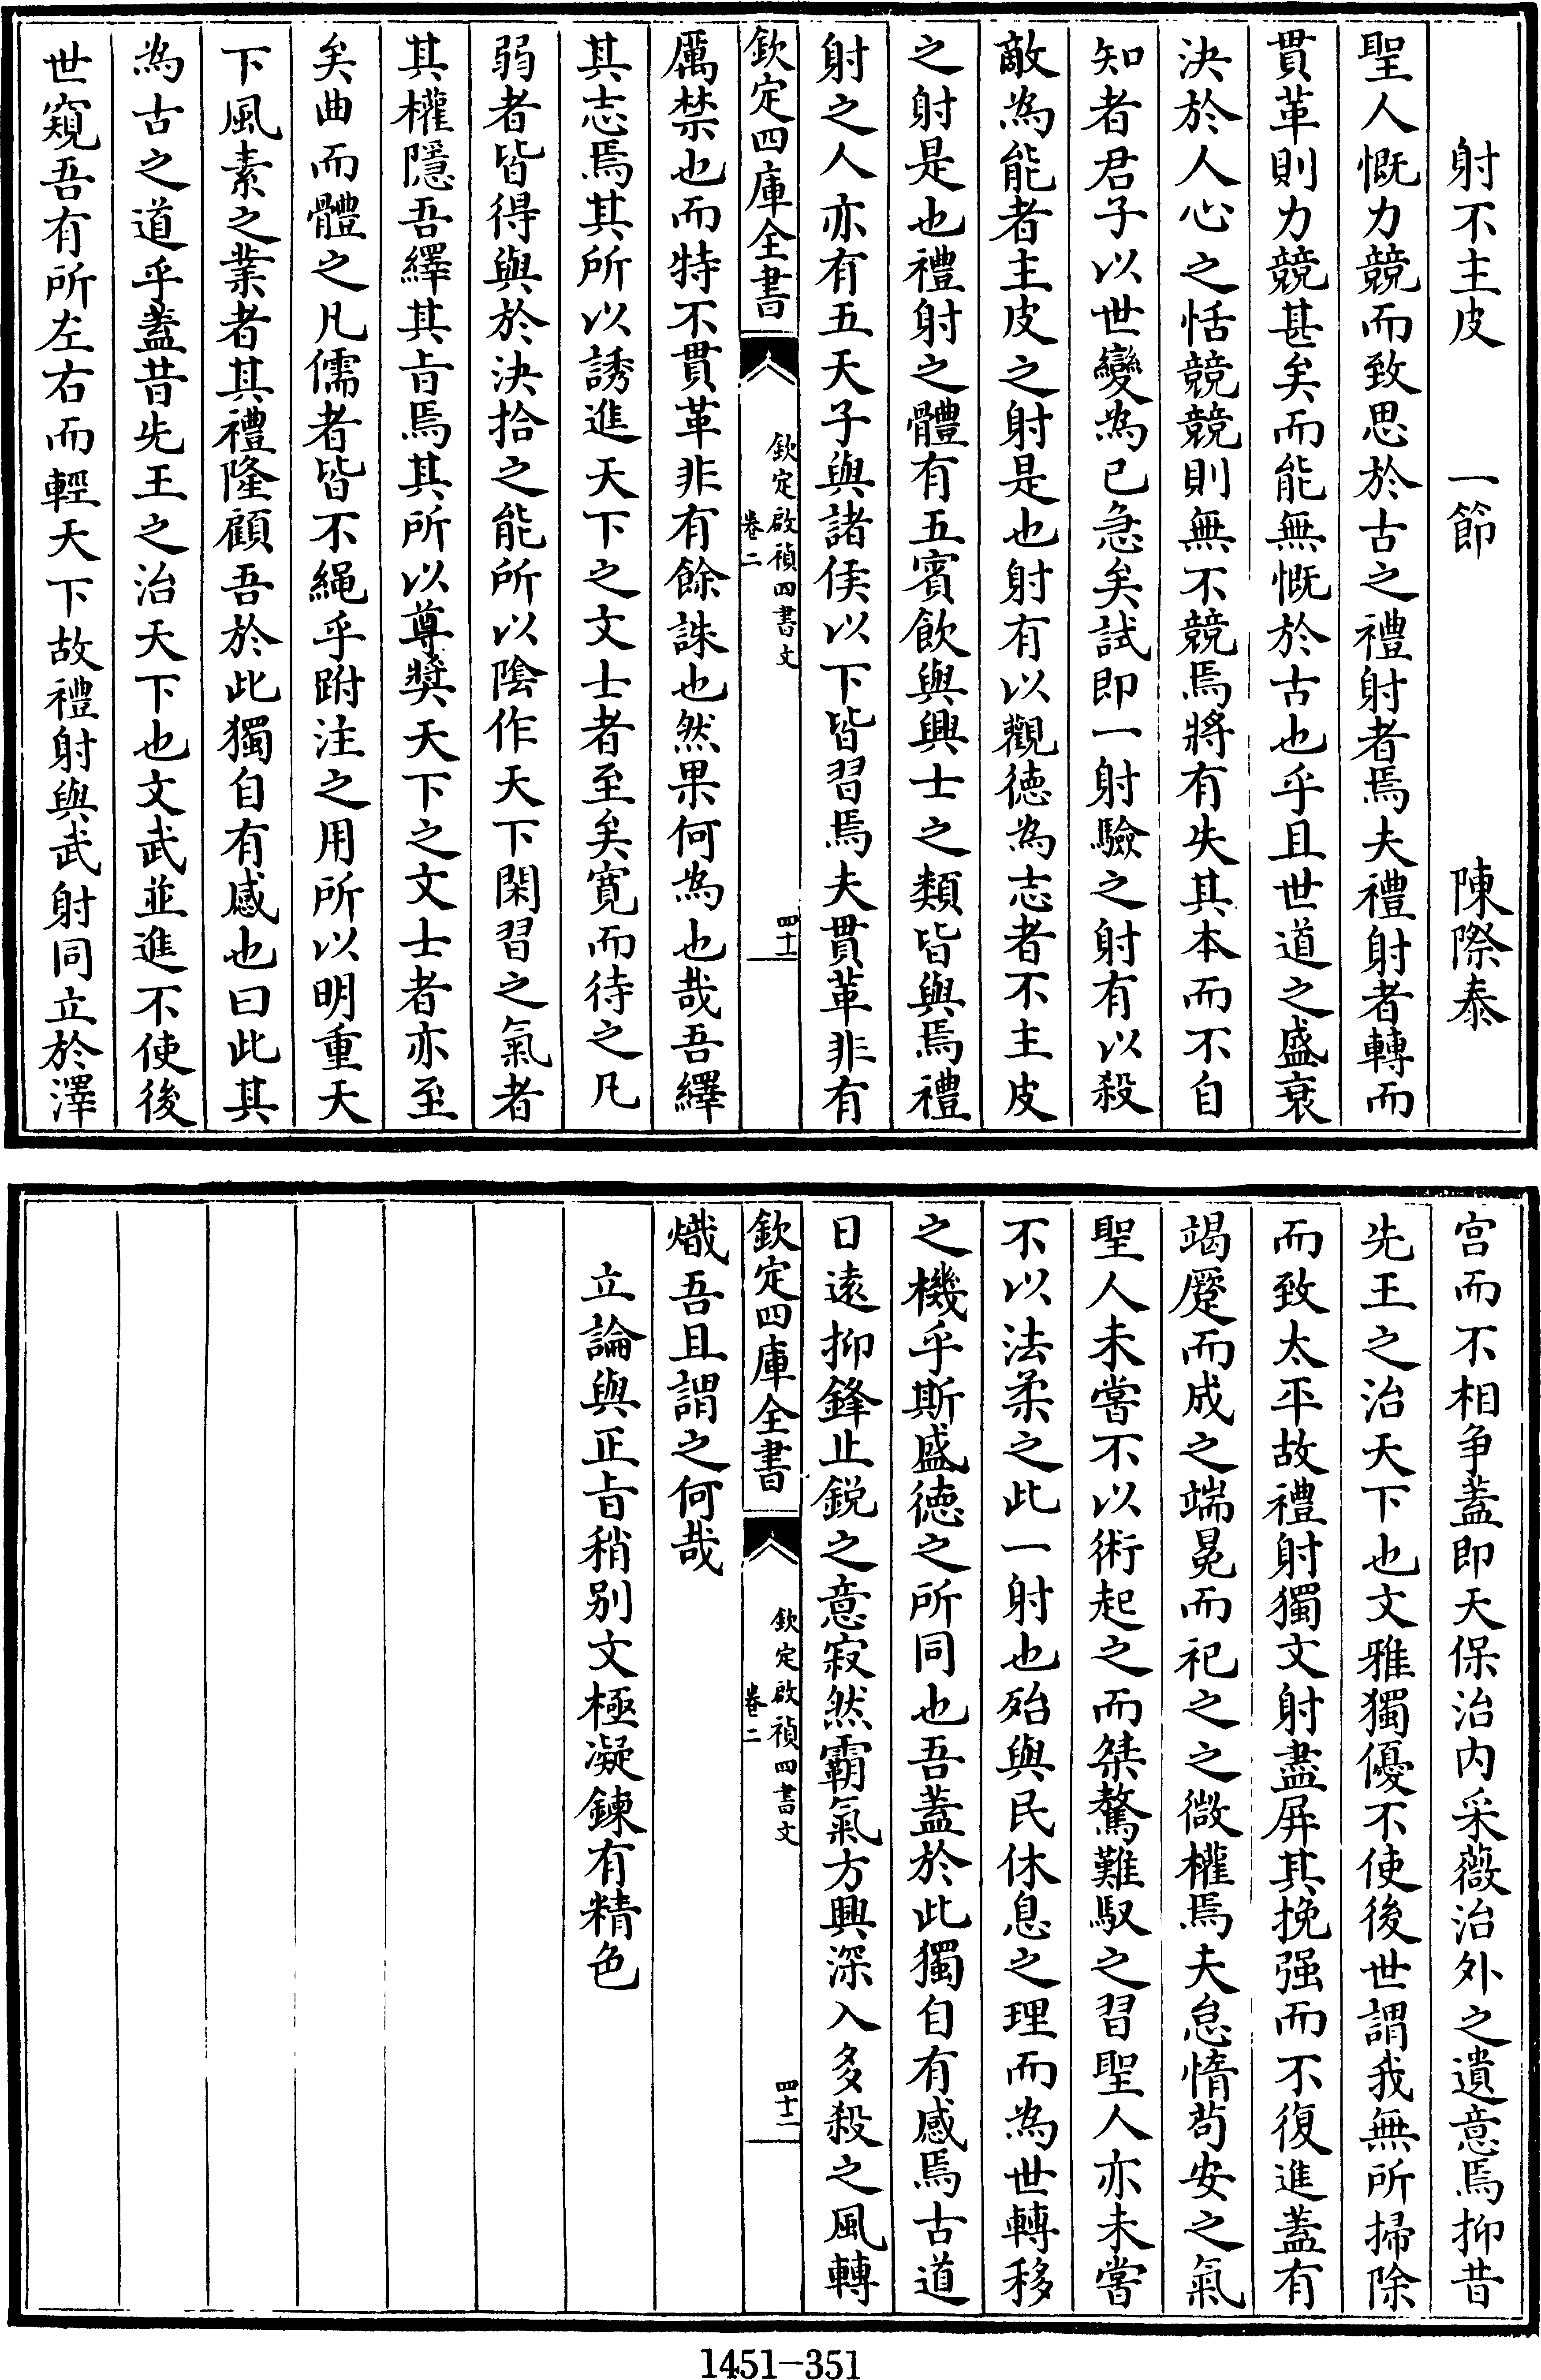 射不主皮　一節　陳際泰
聖人慨力競而致思於古之禮射者焉夫禮射者轉而
貫革則力競甚矣而能無慨於古也乎且世道之盛衰
決於人心之恬競競則無不競焉將有失其本而不自
知者君子以世變為已急矣試即一射驗之射有以殺
敵為能者主皮之射是也射有以觀德為志者不主皮
之射是也禮射之體有五賓飲與興士之類皆與焉禮
射之人亦有五天子與諸侯以下皆習焉夫貫革非有
欽定四庫全書
欽定啟禎四書文
卷二
四十一
厲禁也而特不貫革非有餘誅也然果何為也哉吾繹
其志焉其所以誘進天下之文士者至矣寬而待之凡
弱者皆得與於決拾之能所以陰作天下閑習之氣者
其權隱吾繹其旨焉其所以尊奬天下之文士者亦至
矣曲而體之凡儒者皆不繩乎跗注之用所以明重天
下風素之業者其禮隆顧吾於此獨自有感也曰此其
為古之道乎蓋昔先王之治天下也文武並進不使後
世窺吾有所左右而輕天下故禮射與武射同立於澤
宫而不相争蓋即天保治内采薇治外之遺意焉抑昔
先王之治天下也文雅獨優不使後世謂我無所掃除
而致太平故禮射獨文射盡屏其挽强而不復進蓋有
竭蹷而成之端冕而祀之之微權焉夫怠惰茍安之氣
聖人未嘗不以術起之而桀驁難馭之習聖人亦未嘗
不以法柔之此一射也殆與民休息之理而為世轉移
之機乎斯盛徳之所同也吾蓋於此獨自有感焉古道
日遠抑鋒止鋭之意寂然霸氣方興深入多殺之風轉
欽定四庫全書
欽定啟禎四書文
卷二
四十二
熾吾且謂之何哉
立論與正旨稍别文極凝鍊有精色
1451-351